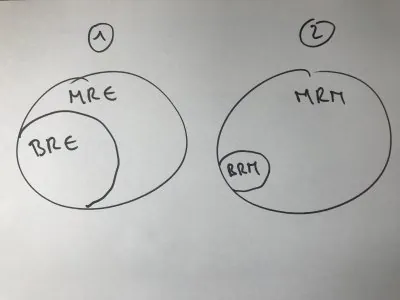 1
2
MRE
BRE
MRM
BRM